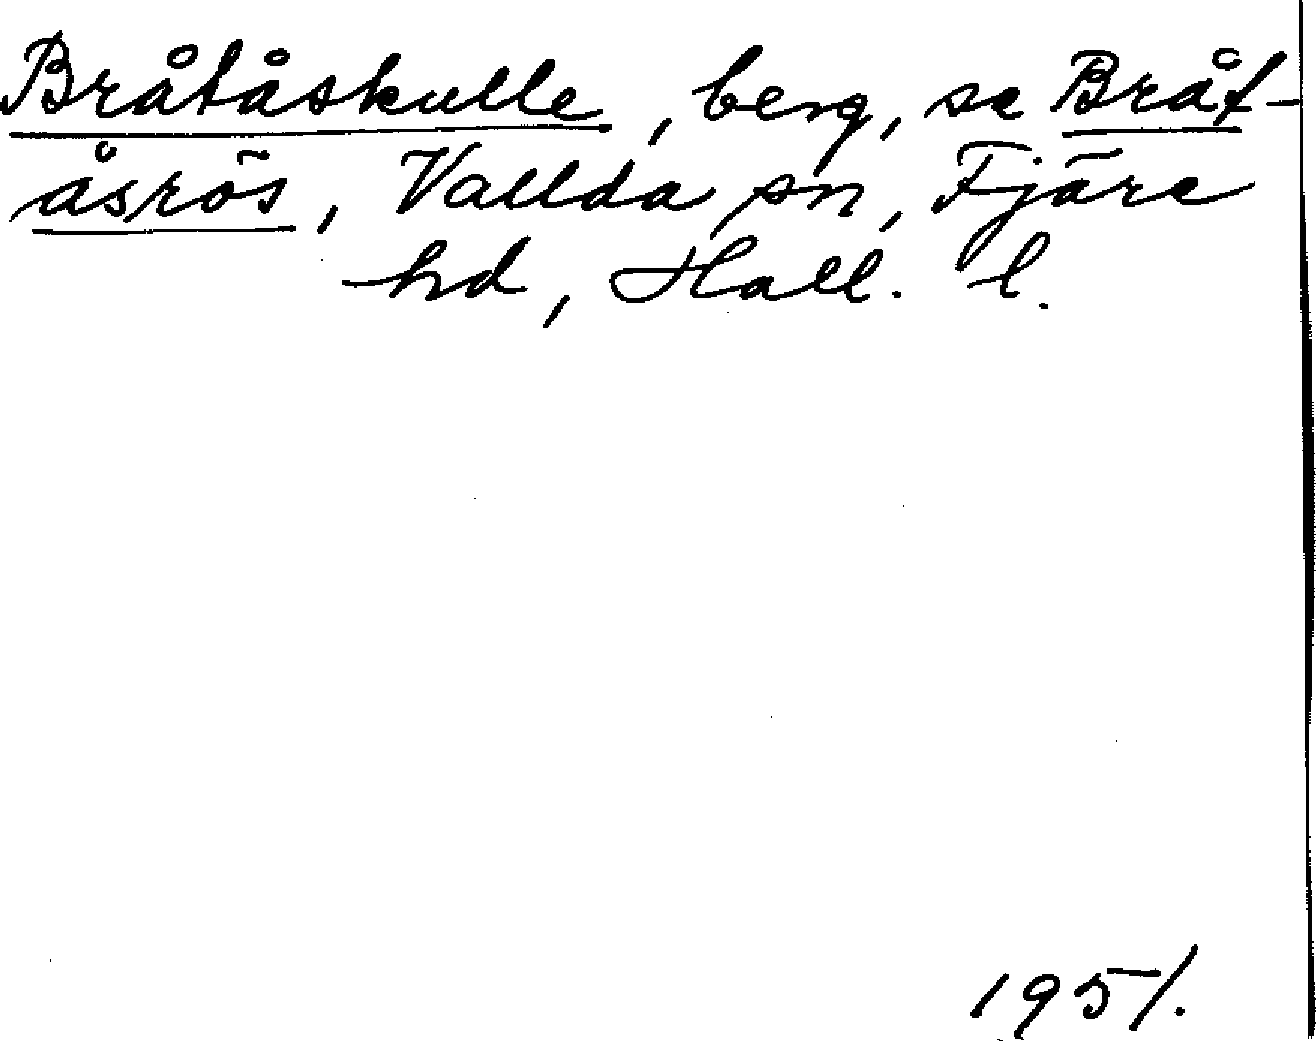 Bråtåskulle, berg, se Bråt-
åsrös, Vallda sn, Fjäre
hd, Hall. l.
1951.